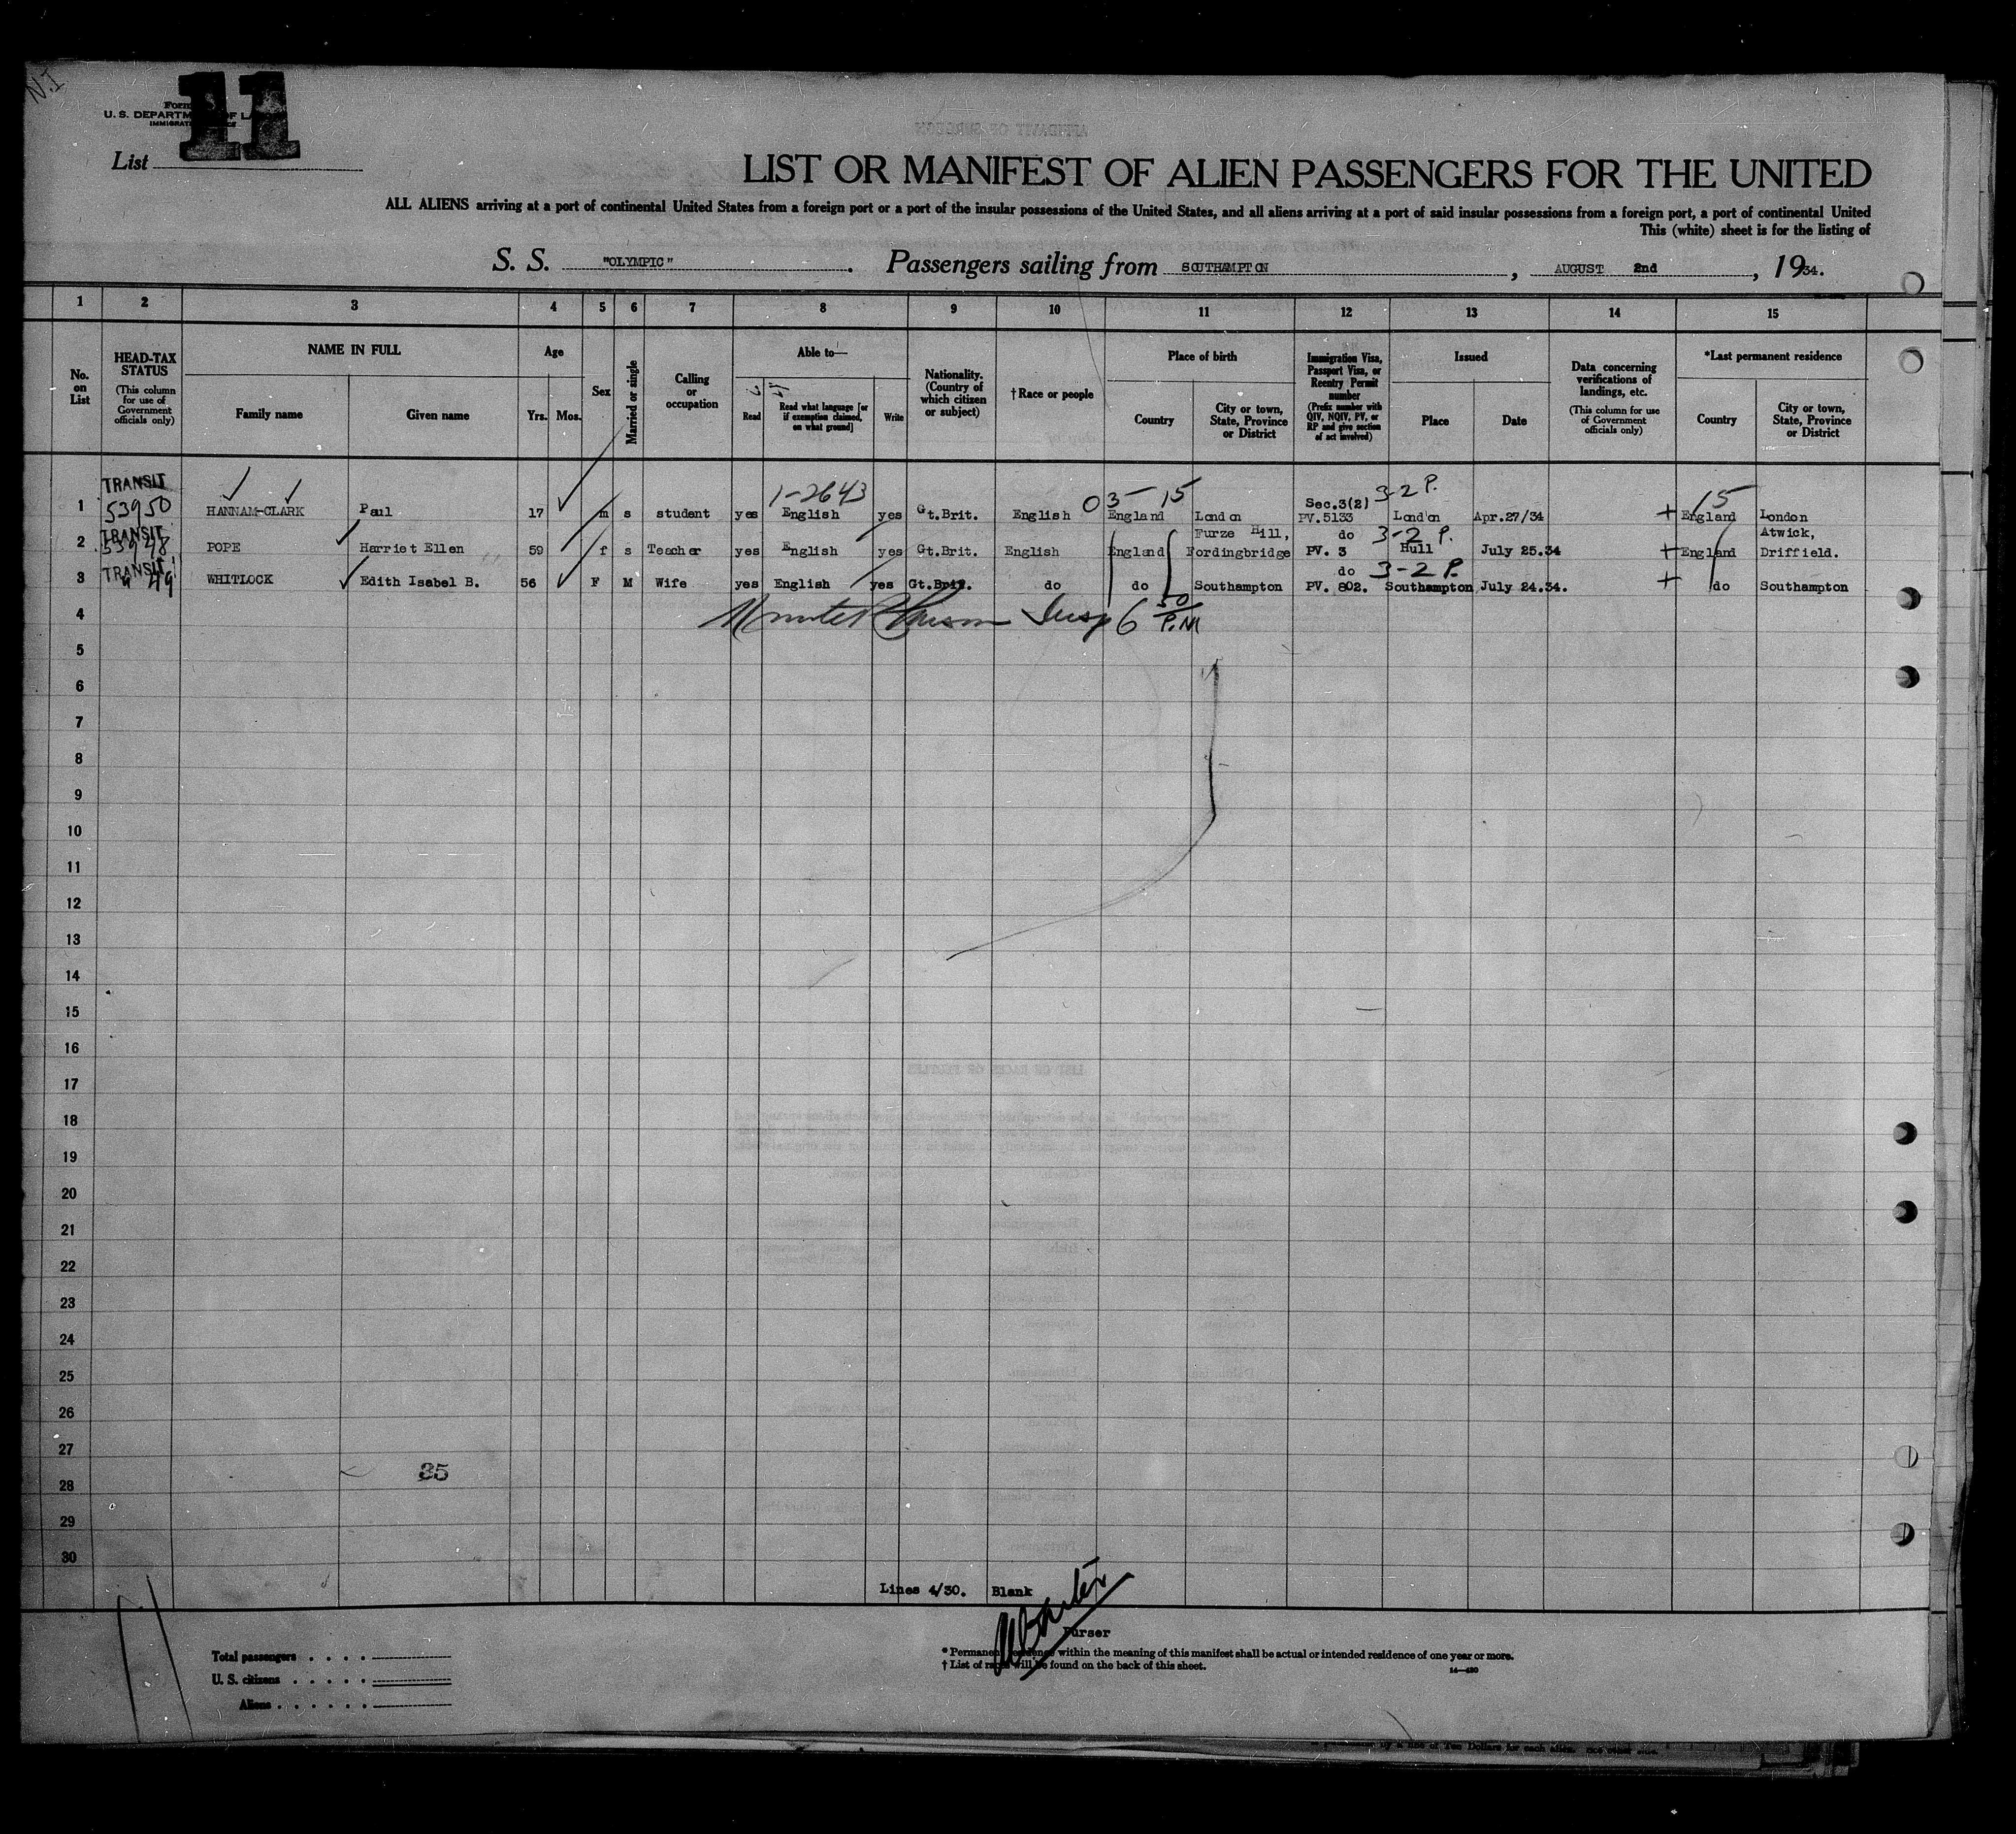 N.I
11
Form
U. S. DEPARTM OF LA
IMMIGRAT
List
LIST OR MANIFEST OF ALIEN PASSENGERS FOR THE UNITED
ALL ALIENS arriving at a port of continental United States from a foreign port or a port of the insular possessions of the United States, and all aliens arriving at a port of said insular possessions from a foreign port, a port of continental United
This (white) sheet is for the listing of
S. S. "OLYMPIC". Passengers sailing from SOUTHAMPTON, AUGUST 2nd, 1934.
1 2 3 4 5 6 7 8 9 10 11 12 13 14 15
No. on List
HEAD-TAX STATUS
(This column for use of Government officials only)
NAME IN FULL
Family name
Given name
Age
Yrs. Mos.
Sex
Married or single
Calling or occupation
Able to—
Read
Read what language [or if exemption claimed, on what ground]
Write
Nationality. (Country of which citizen or subject)
†Race or people
Place of birth
Country
City or town, State, Province or District
Immigration Visa, Passport Visa, or Reentry Permit number
(Prefix number with QIV, NQIV, PV, or RP and give section of act involved)
Issued
Place
Date
Data concerning verifications of landings, etc.
(This column for use of Government officials only)
*Last permanent residence
Country
City or town, State, Province or District
TRANSIT 1-2643 03-15 Sec.3(2) 3-2 P. 15
1 53950 HANNAM-CLARK Paul 17 m s student yes English yes Gt.Brit. English England London PV.5133 London Apr.27/34 + England London
TRANSIT Furze Hill, do 3-2 P. Atwick,
2 53948 POPE Harriet Ellen 59 f s Teacher yes English yes Gt.Brit. English England Fordingbridge PV. 3 Hull July 25.34 + England Driffield.
TRANSIT do 3-2 P.
3 49 WHITLOCK Edith Isabel B. 56 F M Wife yes English yes Gt.Brit. do do Southampton PV. 802. Southampton July 24.34. + do Southampton
4 Insp 6 50 P.M
5
6
7
8
9
10
11
12
13
14
15
16
17
18
19
20
21
22
23
24
25
26
27
35
28
29
30
Lines 4/30. Blank
Purser
Total passengers
U. S. citizens
Aliens
* Permanent residence within the meaning of this manifest shall be actual or intended residence of one year or more.
† List of races will be found on the back of this sheet.
14—430